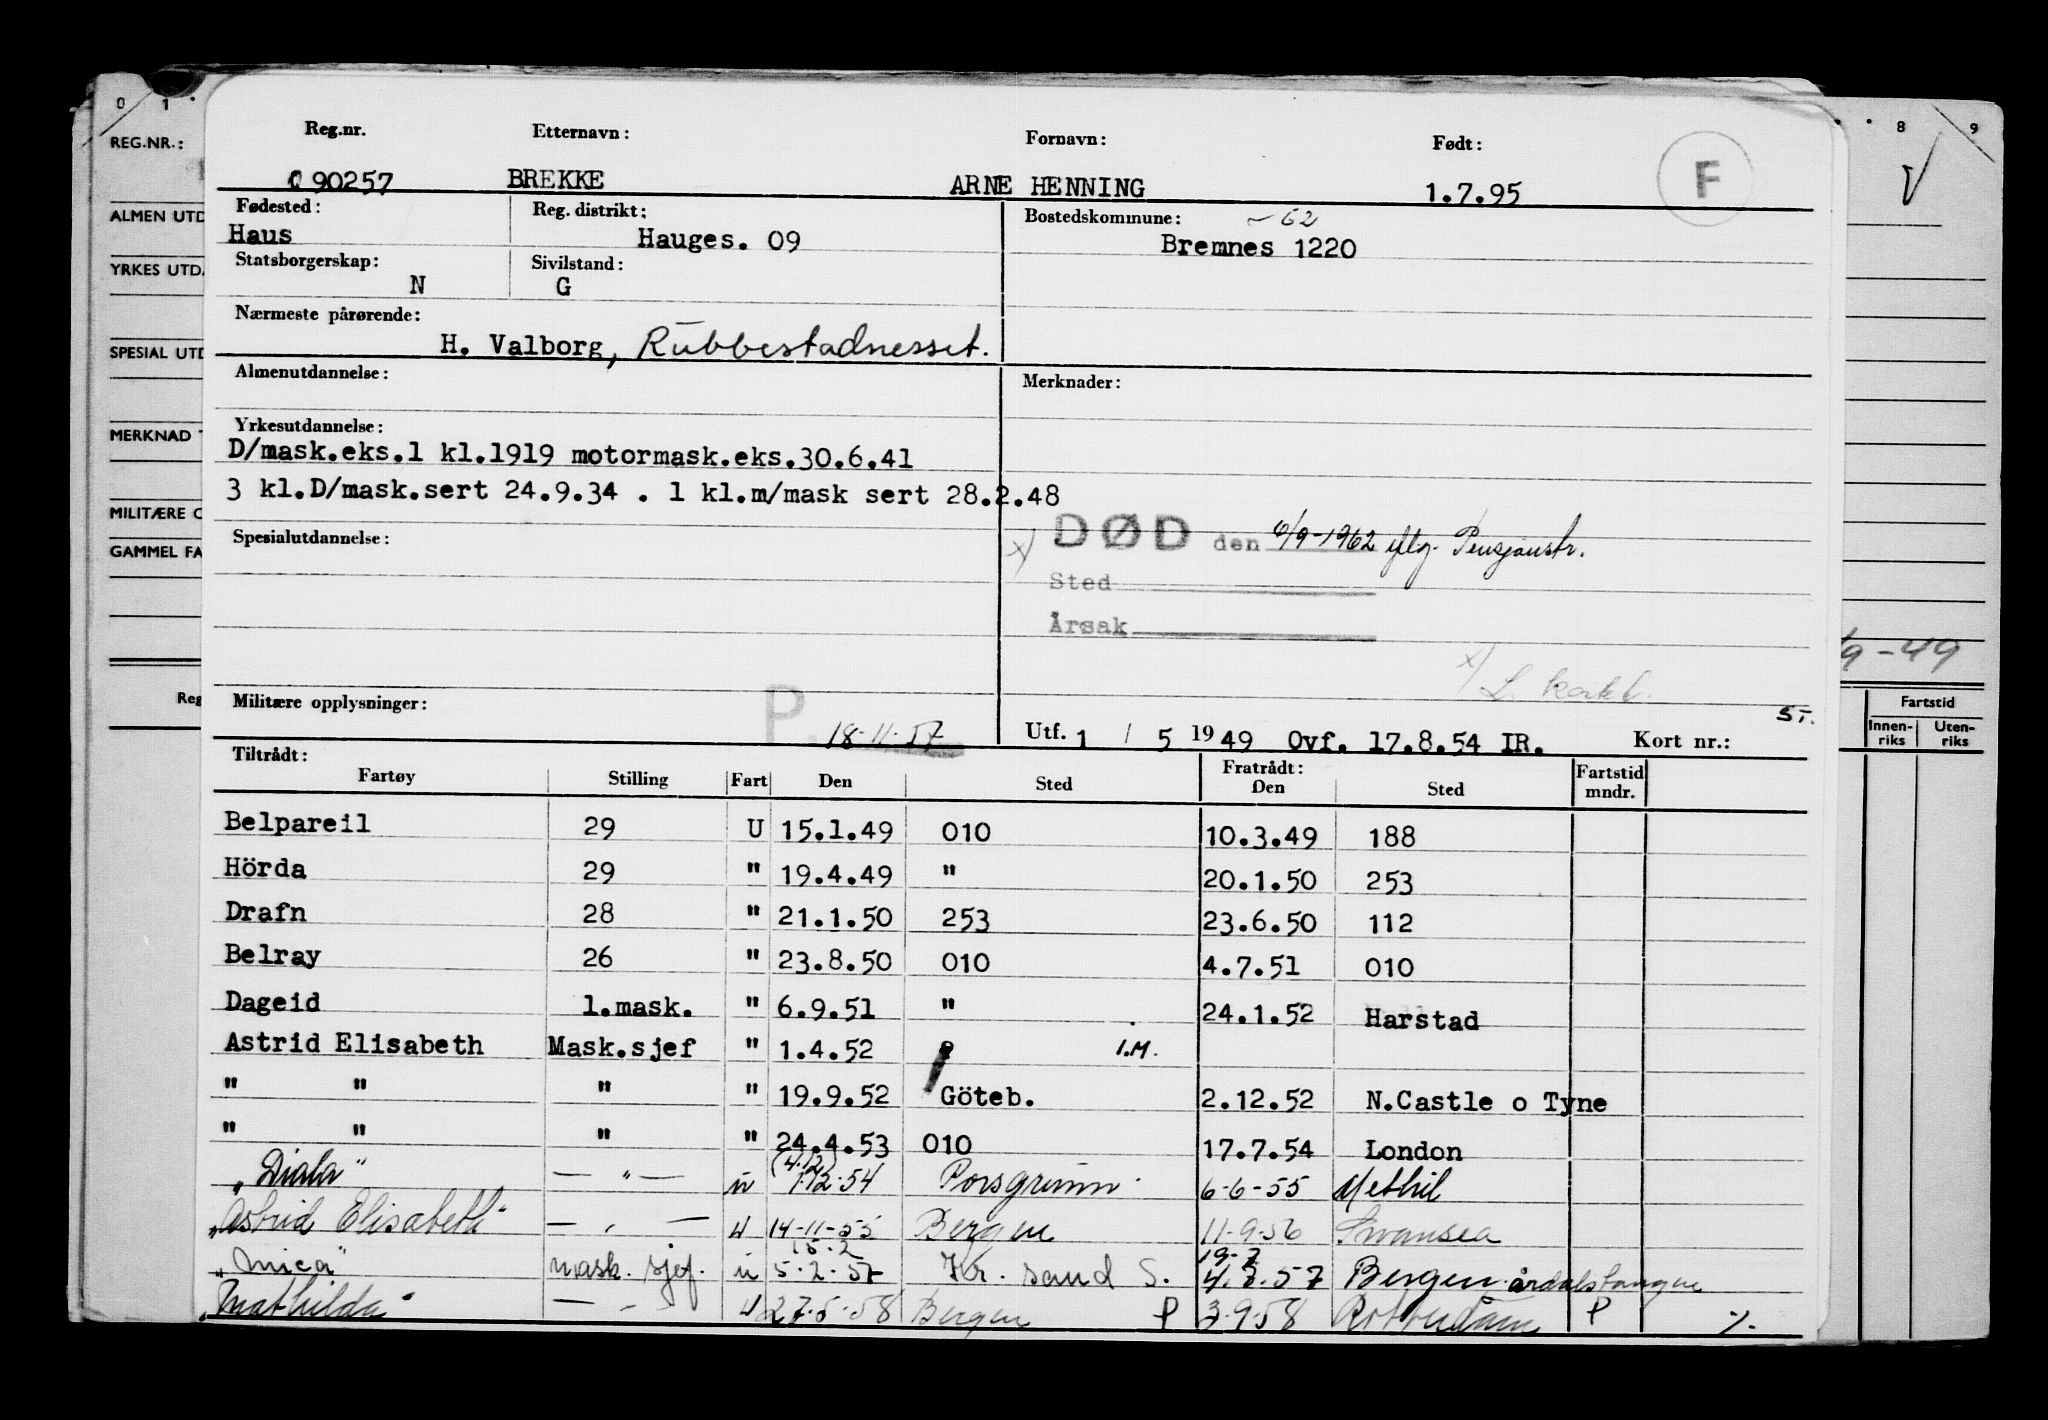 0 1 8 9
REG.NR.:
ALMEN UTD
YRKES UTD.
SPESIAL UTD
MERKNAD T
MILITÆRE O
GAMMEL FA
Reg
/9 - 49
Fartstid
Innen-riks Uten-riks
Reg.nr. Etternavn: Fornavn: Født:
090257 BREKKE ARNE HENNING 1.7.95 F
Fødested: Reg. distrikt: Bostedskommune: - 62
Haus Hauges. 09 Bremnes 1220
Statsborgerskap: Sivilstand:
N G
Nærmeste pårørende:
H. Valborg, Rubbestadnesset.
Almenutdannelse: Merknader:
Yrkesutdannelse:
D/mask.eks.1 kl.1919 motormask.eks.30.6.41
3 kl.D/mask.sert 24.9.34 . 1 kl.m/mask sert 28.2.48
Spesialutdannelse: x) DØD den /9-1962 iflg. Pensjonstr.
Sted
Årsak
x)
Militære opplysninger: P. 18-11-57 Utf. 1 / 5 1949 Ovf. 17.8.54 IR. Kort nr.: ST.
Tiltrådt: Fratrådt:
Fartøy Stilling Fart Den Sted Den Sted Fartstid mndr.
Belpareil 29 U 15.1.49 010 10.3.49 188
Hörda 29 " 19.4.49 " 20.1.50 253
Drafn 28 " 21.1.50 253 23.6.50 112
Belray 26 " 23.8.50 010 4.7.51 010
Dageid 1.mask. " 6.9.51 " 24.1.52 Harstad
Astrid Elisabeth Mask.sjef " 1.4.52 I.M.
" " " " 19.9.52 Göteb. 2.12.52 N.Castle o Tyne
" " " " 24.4.53 010 17.7.54 London
"Diala" — " — u (4.12) 1.12.54 Porsgrunn 6-6-55 Methil
"Astrid Elisabeth" — " — u 14-11-55 Bergen 11-9-56 Swansea
"Mica" mask. sjef. u 15.2 5.2.57 Kr. sand S. 19-7 4.7.57 Bergen Årdalstangen
"Mathilda" — " u 27.5.58 Bergen P 3.9.58 Rotterdam P